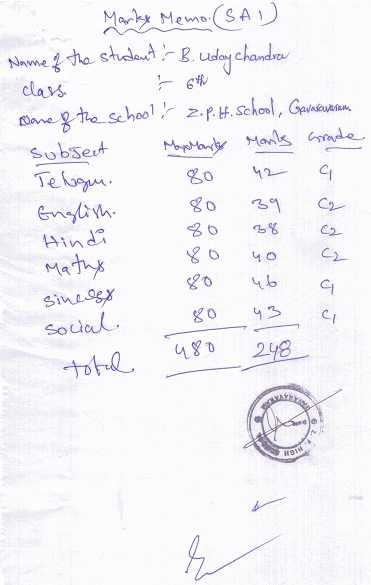 Marks Memo. (SA1)
Name of the student :- B. Uday chandra
class. :- 6th
Name of the school :- Z.P.H. School, Gavaravaram
Subject Max Marks Marks Grade
Telugu. 80 42 C1
English. 80 39 C2
Hindi 80 38 C2
Maths 80 40 C2
80 46 C1
Social. 80 43 C1
total 480 248
Z.P. HIGH